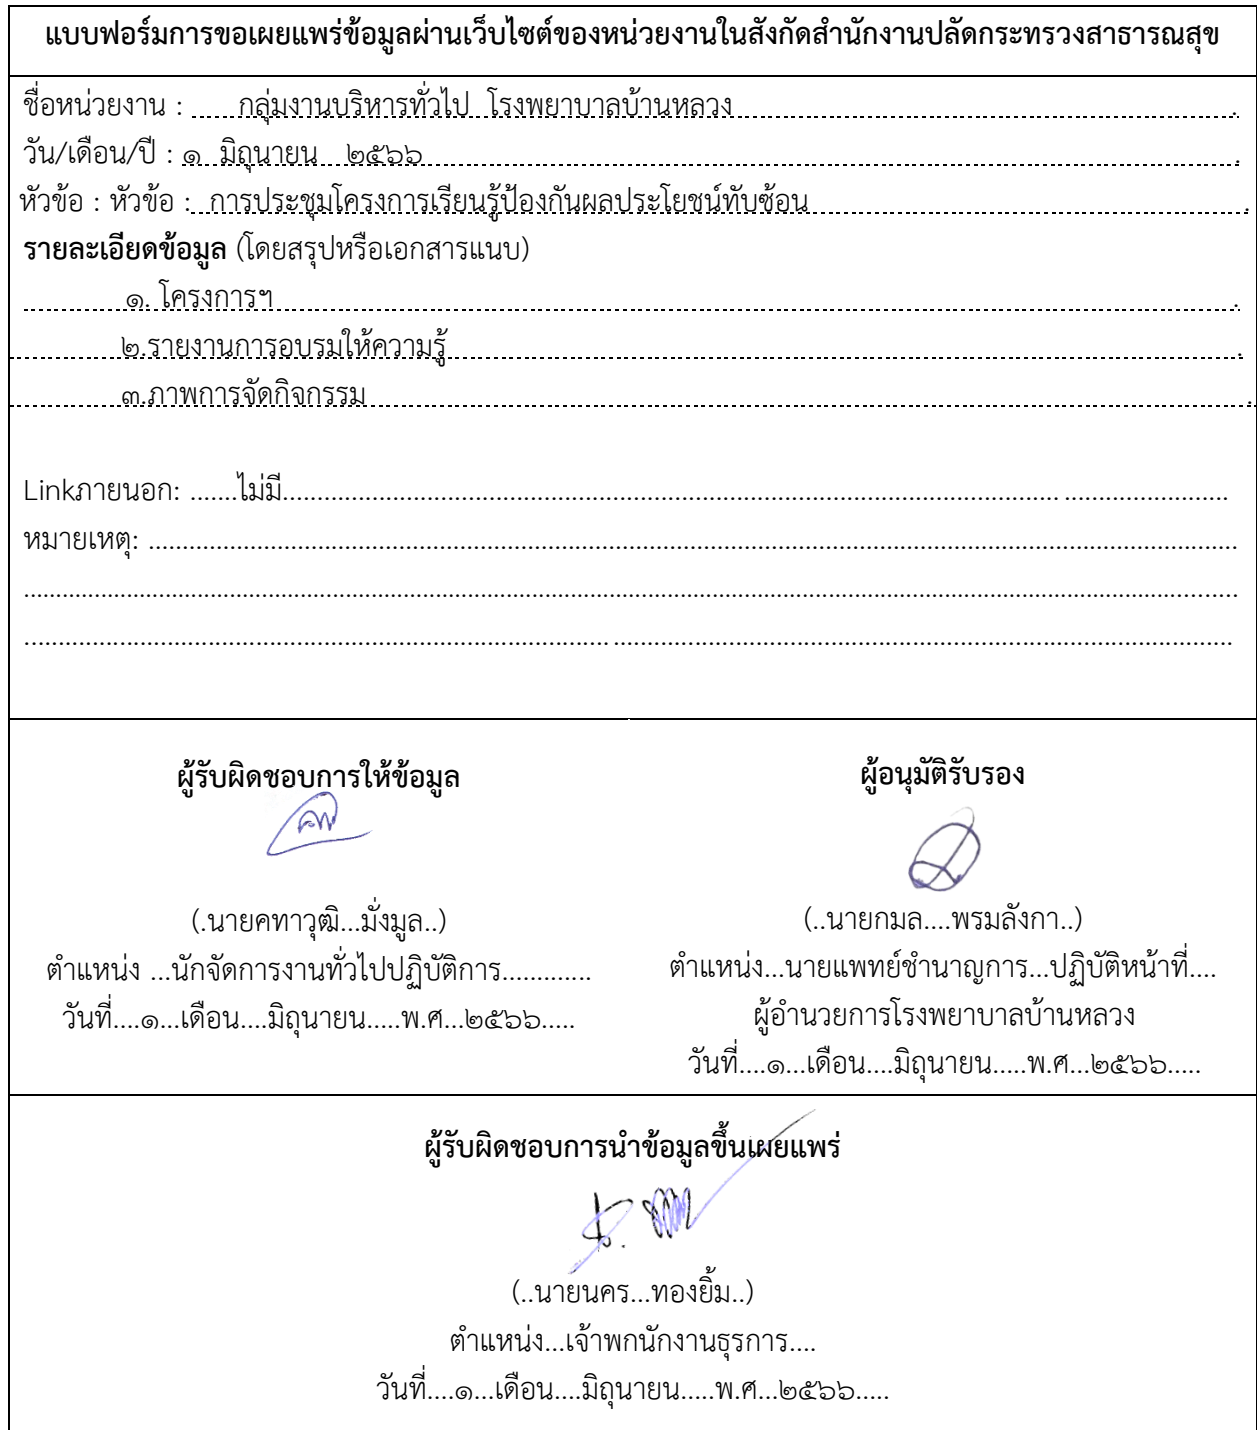 แบบฟอร์มการขอเผยแพร่ข้อมูลผ่านเว็บไซต์ของหน่วยงานในสังกัดสำนักงานปลัดกระทรวงสาธารณสุข
ชื่อหน่วยงาน : .....กลุ่มงานบริหารทั่วไป โรงพยาบาลบ้านหลวง.....
วัน/เดือน/ปี : ๑ มิถุนายน ๒๕๖๖.....
หัวข้อ : หัวข้อ : การประชุมโครงการเรียนรู้ป้องกันผลประโยชน์ทับซ้อน.....
รายละเอียดข้อมูล (โดยสรุปหรือเอกสารแนบ)
.....๑. โครงการฯ.....
.....๒.รายงานการอบรมให้ความรู้.....
.....๓.ภาพการจัดกิจกรรม.....
Linkภายนอก: .......ไม่มี.....
หมายเหตุ: .....
ผู้รับผิดชอบการให้ข้อมูล
(.นายคทาวุฒิ...มั่งมูล..)
ตำแหน่ง ...นักจัดการงานทั่วไปปฏิบัติการ.............
วันที่....๑...เดือน....มิถุนายน.....พ.ศ...๒๕๖๖.....
ผู้อนุมัติรับรอง
(..นายกมล....พรมลังกา..)
ตำแหน่ง...นายแพทย์ชำนาญการ...ปฏิบัติหน้าที่....
ผู้อำนวยการโรงพยาบาลบ้านหลวง
วันที่....๑...เดือน....มิถุนายน.....พ.ศ...๒๕๖๖.....
ผู้รับผิดชอบการนำข้อมูลขึ้นเผยแพร่
(..นายนคร...ทองยิ้ม..)
ตำแหน่ง...เจ้าพกนักงานธุรการ....
วันที่....๑...เดือน....มิถุนายน.....พ.ศ...๒๕๖๖.....